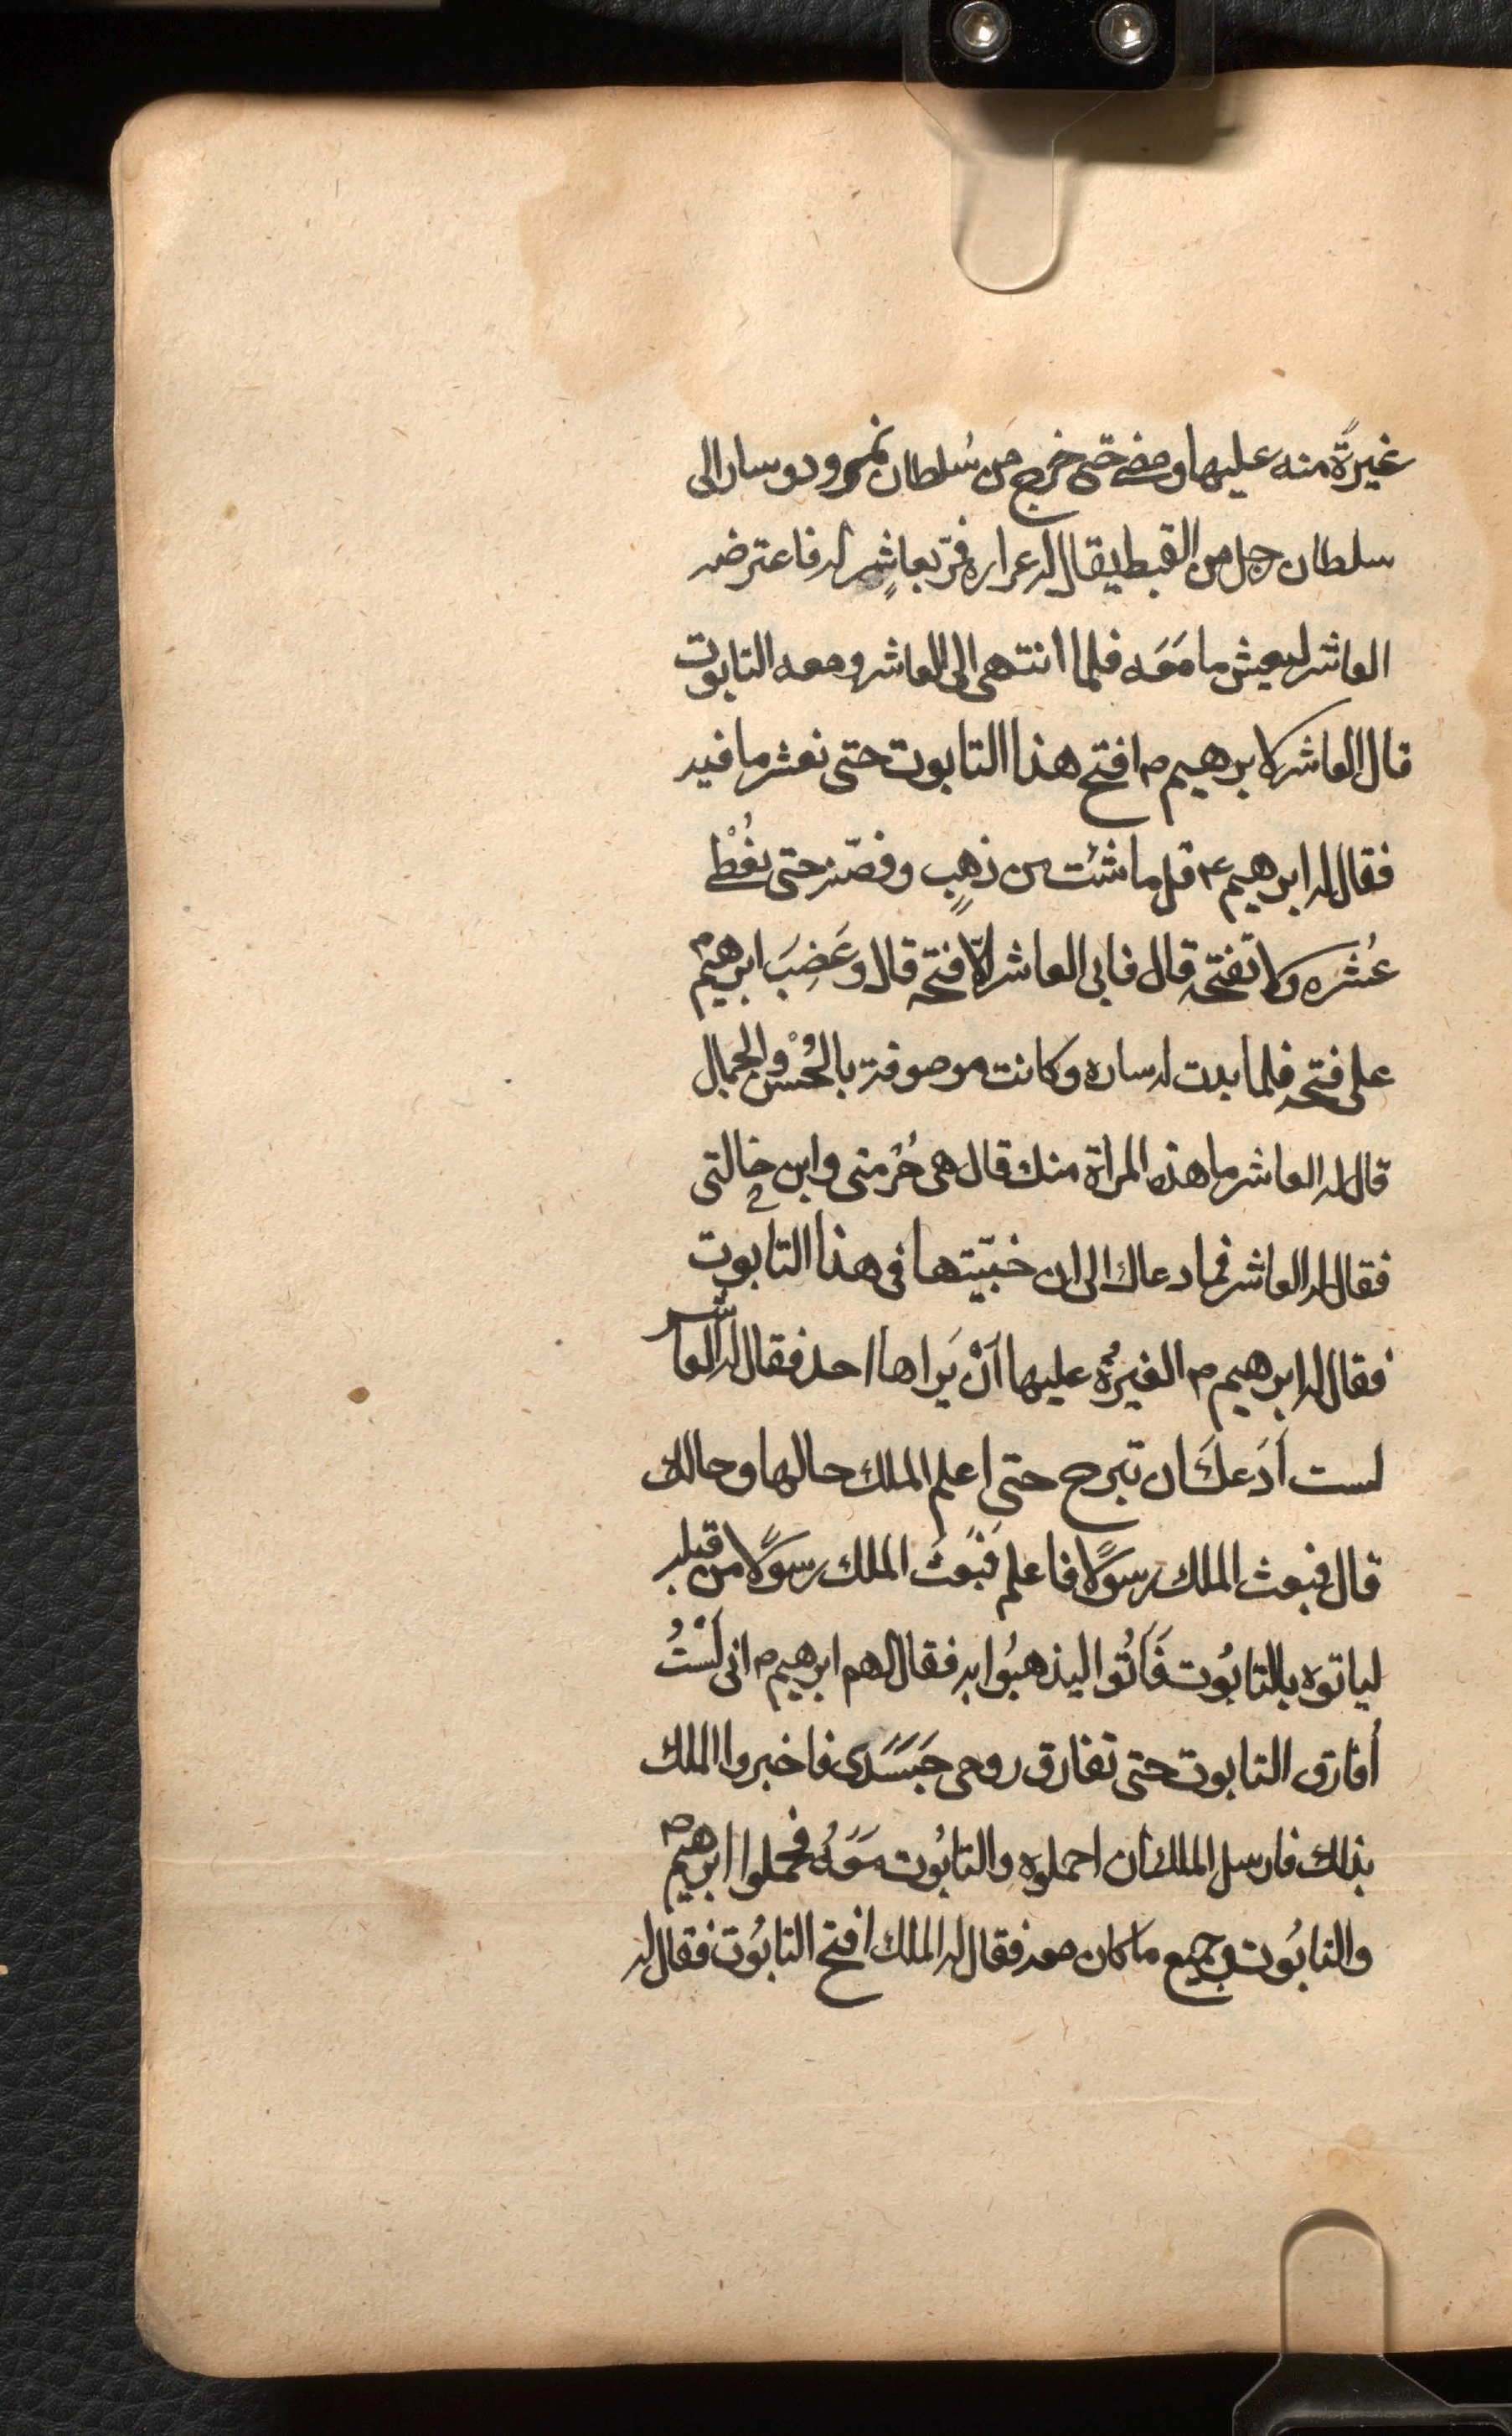 غيرةً منه عليها ومضى حتى خرج من سُلطان نمرود وسار الى
سلطان رجل من القبط يقال له عراره فمرّ بعاشٍر له فاعترضه
العاشر ليعشر ما مَعَه فلما انتهى الى العاشر ومعه التابوت
قال العاشر لابرهيم ۴ افتح هذا التابوت حتى نعشر ما فيه
فقال له ابرهيم ۴ قل ما شئت من ذهبٍ وفضّة حتى نُعْطى
عُشره ولا تفتحه قال فابى العاشر الّا فتحه قال وغَضِبَ ابرهيم ۴
على فتحه فلما بدت له ساره وكانت موصوفة بالحُسْنِ والجمال
قال له العاشر ما هذه المراة منك قال هى حُرمتى وابن خالتى
فقال له العاشر فما دعاك الى ان خبّيتها فى هذا التابوت
فقال له ابرهيم ۴ الغيرةُ عليها اَنْ يَراها احد فقال له العاشر
لست اَدَعكَ ان تبرح حتى اعلم الملك حالها وحالك
قال فبعث الملك رسولًا فاعلم فبَعَثَ الملك رسولًا من قبله
لياتوه بالتابُوت فَاَتُوا ليذهبُوا به فقال لهم ابرهيم ۴ انى لَسْتُ
أفارق التابوت حتى تفارق روحى جَسَدى فاخبروا الملك
بذلك فارسل الملك أن احملوه والتابُوت مَعَهُ فحملوا ابرهيم ۴
والتابُوت وجميع ما كان معه فقال له الملك افتح التابُوت فقال له